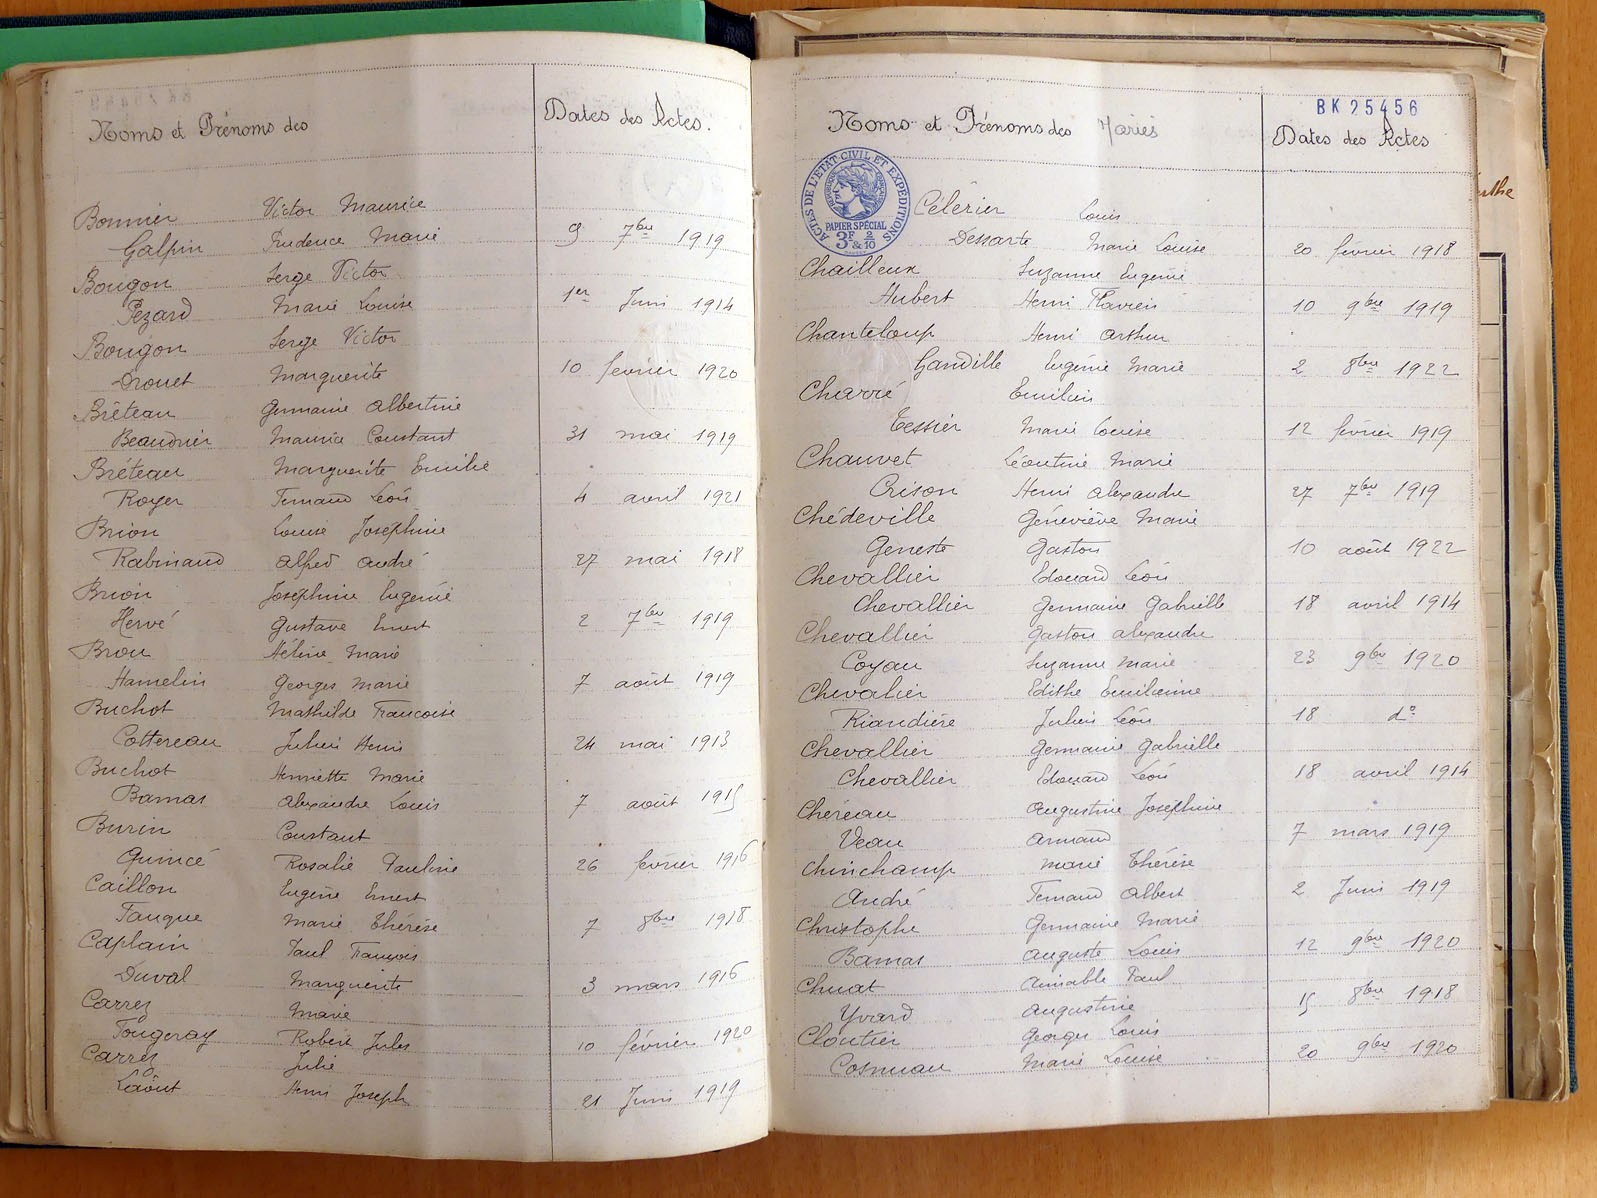 Noms et Prénoms des
Dates des Actes.
Bonnier Victor Maurice
Galpin Prudence Marie 9 7bre 1919
Bougon Serge Victor
Pezard Marie Louise 1er Juin 1914
Bougon Serge Victor
Drouet Marguerite 10 février 1920
Brêteau Germaine Albertine
Beaudrier Maurice Constant 31 mai 1919
Bréteau Marguerite Emilie
Royer Fernand Léon 4 avril 1921
Brion Louise Joséphine
Rabinaud Alfred André 27 mai 1918
Brion Joséphine Eugénie
Hervé Gustave Ernest 2 7bre 1919
Brou Hélène Marie
Hamelin Georges Marie 7 août 1919
Buchot Mathilde Françoise
Cottereau Julien Henri 24 mai 1913
Buchot Henriette Marie
Bamas Alexandre Louis 7 août 1915
Burin Constant
Quincé Rosalie Pauline 26 février 1916
Caillon Eugène Ernest
Fauque Marie Thérèse 7 8bre 1918
Caplain Paul François
Duval Marguerite 3 mars 1916
Carrez Marie
Fougeray Robert Jules 10 février 1920
Carrez Julie
Laöut Henri Joseph 21 Juin 1919
BK 25456
Noms et Prénoms des Mariés
Dates des Actes
ACTES DE L'ETAT CIVIL ET EXPÉDITIONS
PAPIER SPÉCIAL
3F & 2/10
Célérier Louis
Dessarte Marie Louise 20 février 1918
Chailleux Suzanne Eugénie
Hubert Henri Flavien 10 9bre 1919
Chanteloup Henri Arthur
Gandille Eugénie Marie 2 8bre 1922
Charré Emilien
Tessier Marie Louise 12 février 1919
Chauvet Léontine Marie
Crison Henri Alexandre 27 7bre 1919
Chédeville Géneviève Marie
Geneste Gaston 10 août 1922
Chevallier Edouard Léon
Chevallier Germaine Gabrielle 18 avril 1914
Chevallier Gaston Alexandre
Coyau Suzanne Marie 23 9bre 1920
Chevalier Edithe Emilienne
Riandière Julien Léon 18 do
Chevallier Germaine Gabrielle
Chevallier Edouard Léon 18 avril 1914
Chéreau Augustine Joséphine
Veau Armand 7 mars 1919
Chinchamp Marie Thérèse
André Fernand Albert 2 Juin 1919
Christophe Germaine Marie
Bamas Auguste Louis 12 9bre 1920
Chuat Aimable Paul
Yvard Augustine 15 8bre 1918
Cloutier Georges Louis
Cosnuau Marie Louise 20 9bre 1920